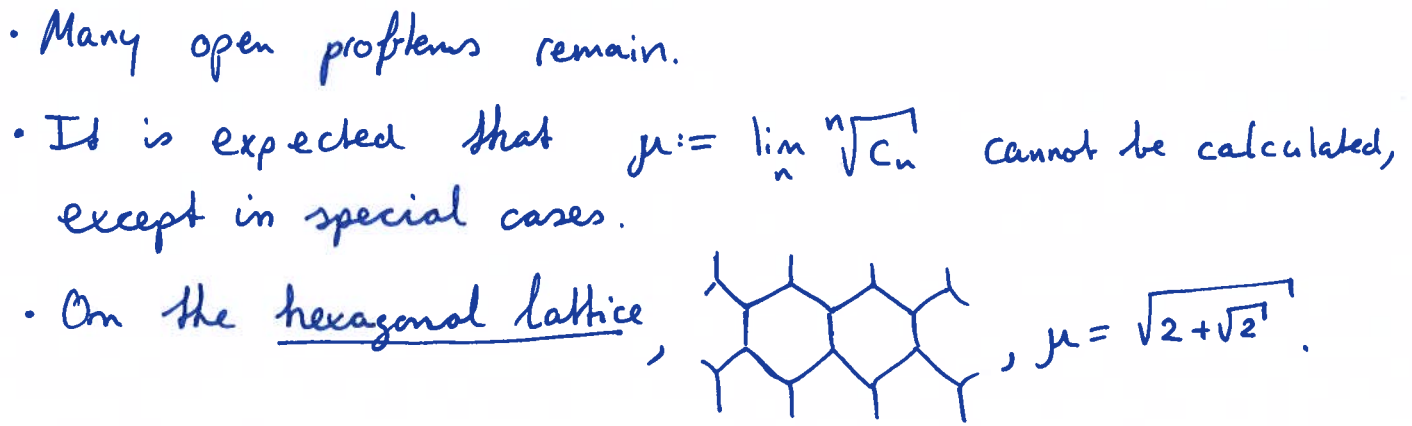 · Many open problems remain.
· It is expected that μ := lim_n ⁿ√c_n cannot be calculated,
except in special cases.
· On the hexagonal lattice, , μ = √(2+√2).